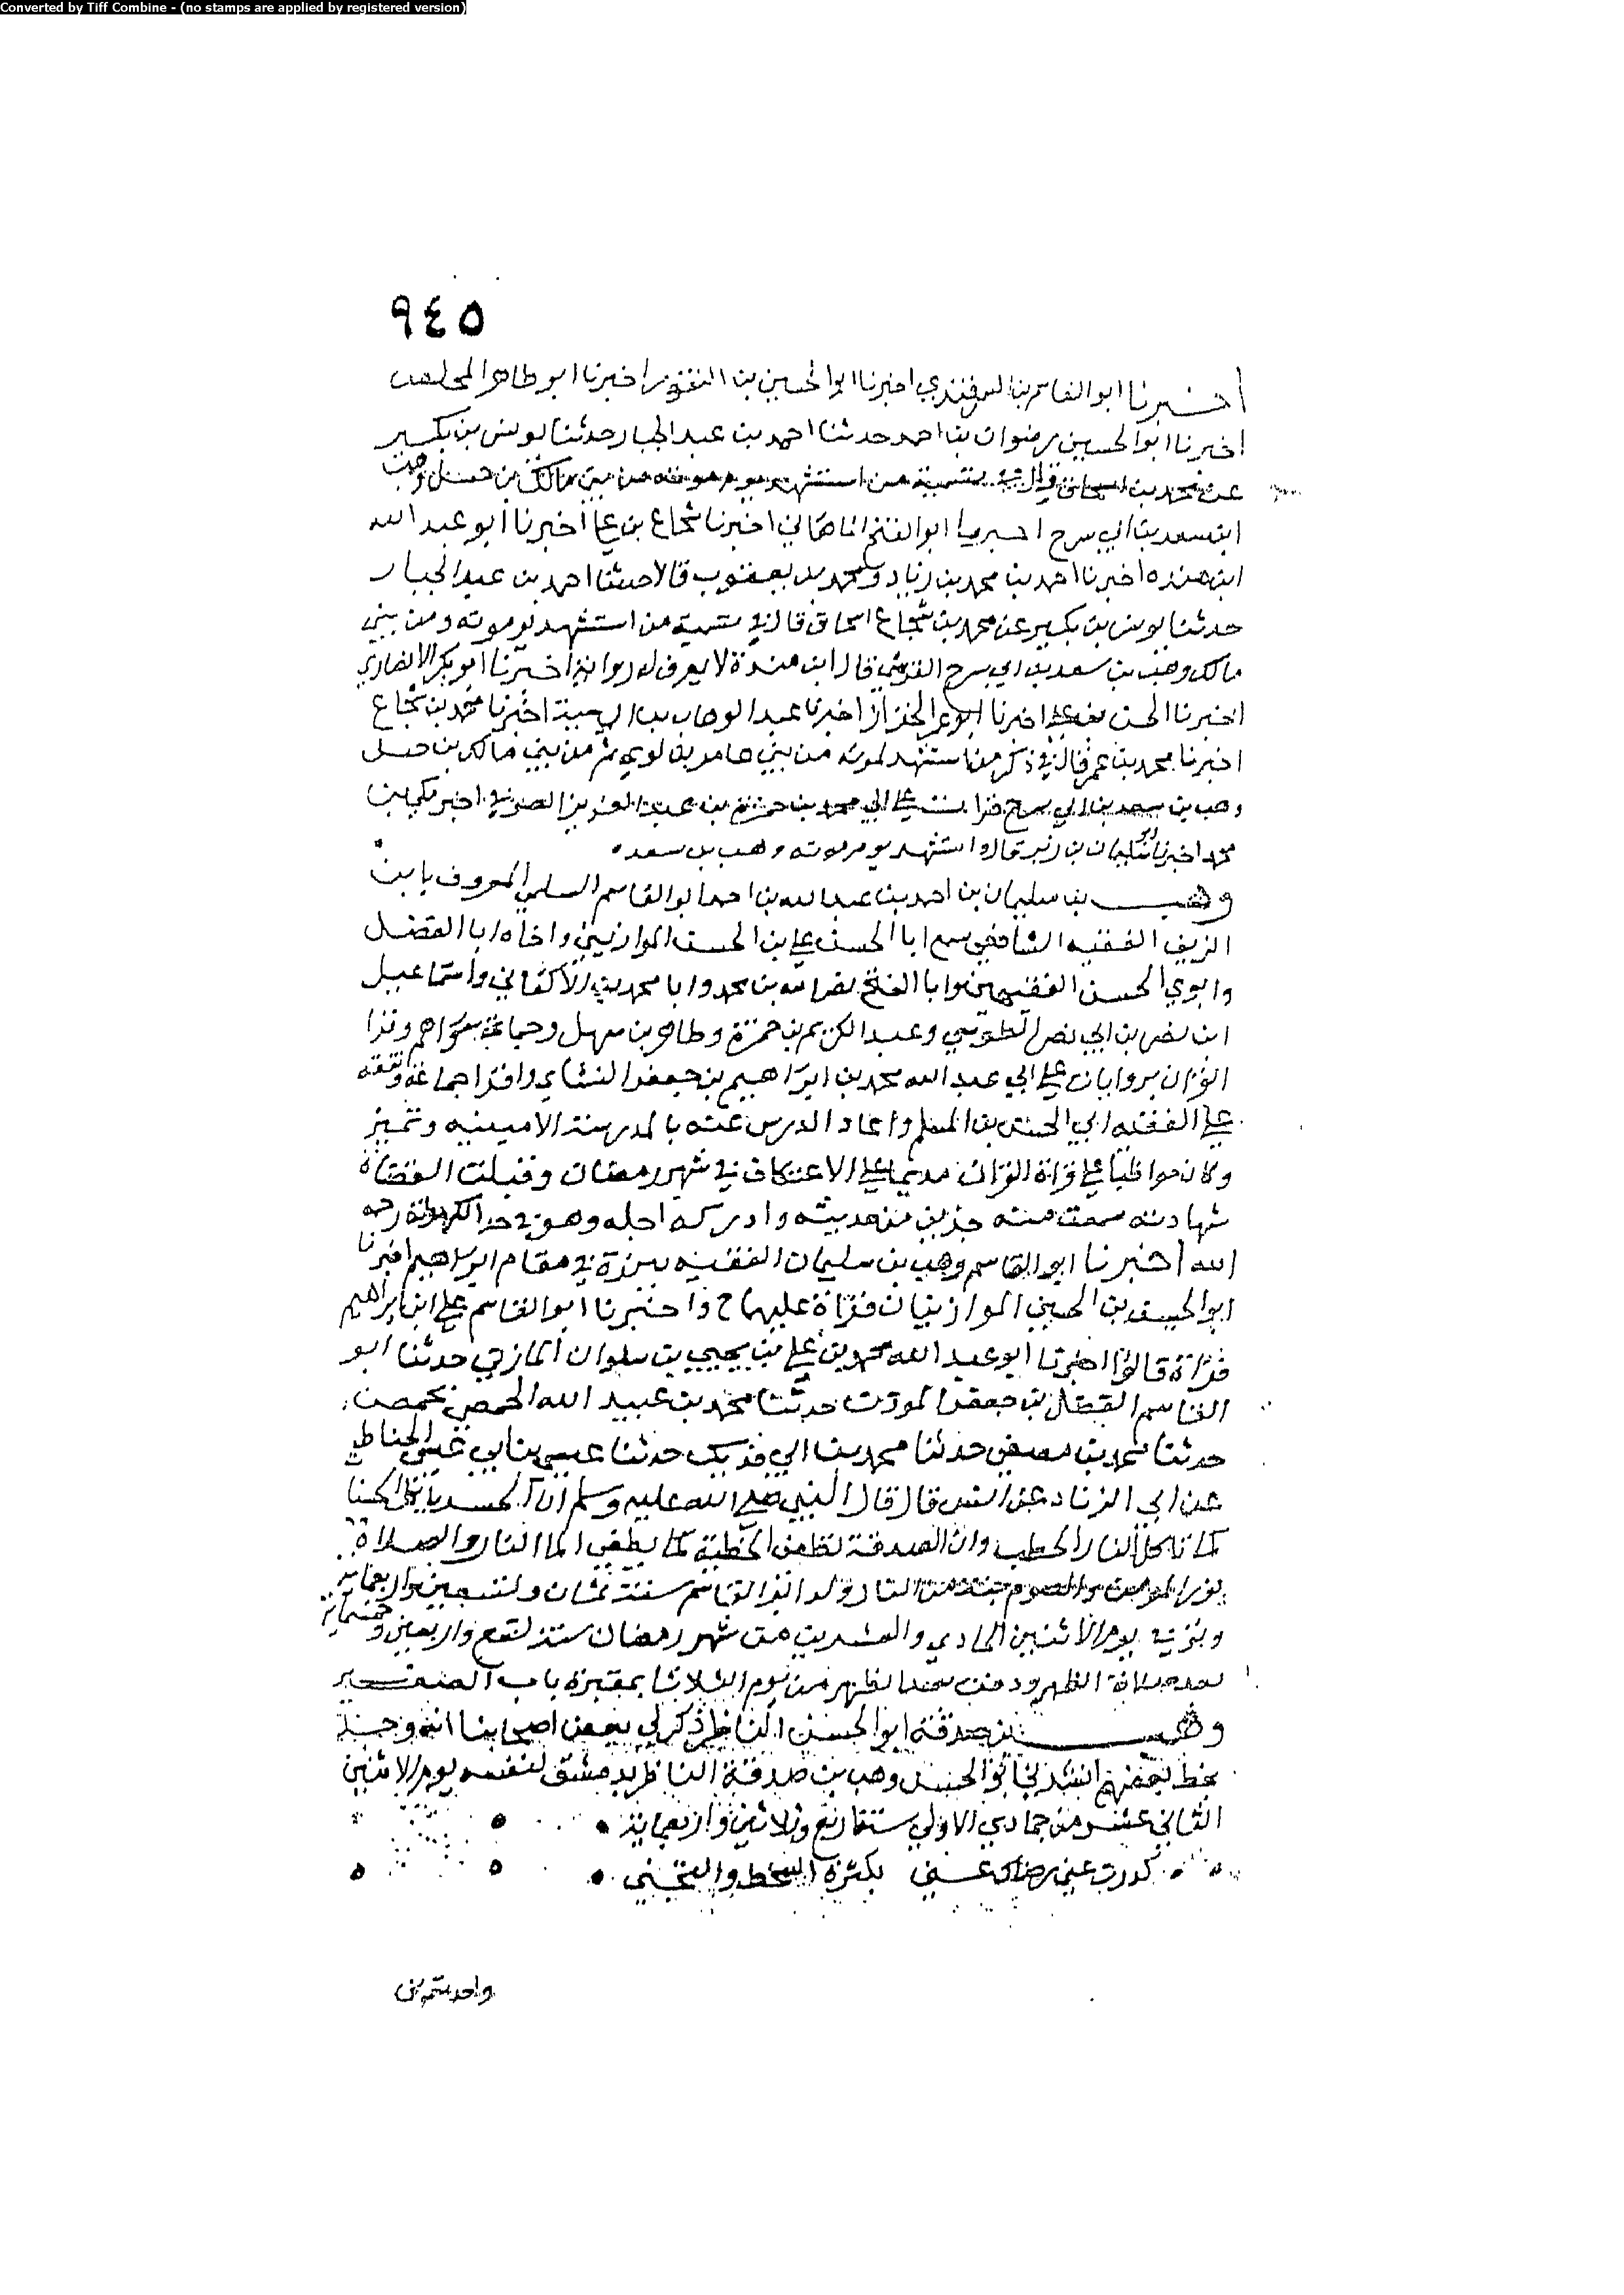 Converted by Tiff Combine - (no stamps are applied by registered version)
٩٤٥
أخبرنا ابو القاسم بن السمرقندي اخبرنا ابو الحسين بن النقور اخبرنا ابو طاهر المخلص
اخبرنا ابو الحسين رضوان بن احمد حدثنا احمد بن عبد الجبار حدثنا يونس بن بكير
عن محمد بن اسحاق قال في تسمية من استشهد يوم موته من بني مالك بن حسل وهب
ابن سعد بن ابي سرح اخبرنا ابو الفتح الماهاني اخبرنا شجاع بن علي أخبرنا ابو عبد الله
ابن منده اخبرنا احمد بن محمد بن زياد ومحمد بن يعقوب قالا حدثنا احمد بن عبد الجبار
حدثنا يونس بن بكير عن محمد بن اسحاق قال في تسمية من استشهد يوم موته ومن بني
مالك وهب بن سعد بن ابي سرح القرشي قال ابن مندة لا يعرف له رواية أخبرنا ابو بكر الانصاري
اخبرنا الحسن بن علي اخبرنا ابو عمر الخزاز اخبرنا عبد الوهاب بن ابي حية اخبرنا محمد بن شجاع
اخبرنا محمد بن عمر قال في ذكر من استشهد بموته من بني عامر بن لوي ثم من بني مالك بن حسل
وهب بن سعد بن ابي سرح قرات علي ابي محمد بن حمزة عن عبد العزيز الصوفي اخبر مكي بن
محمد اخبرنا ابو سليمان بن زبر قال واستشهد يوم موته وهب بن سعد
وهب بن سليمان بن احمد بن عبد الله بن احمد ابو القاسم السلمي المعروف بابن
الزيف الفقيه الشافعي سمع ابا الحسن علي بن الحسن الموازيني واخاه ابا الفضل
وابوي الحسن الفقيهين وابا الفتح نصر الله بن محمد وابا محمد بن الاكفاني واسماعيل
ابن نصر بن ابي نصر الطوسي وعبد الكريم بن حمزة وطاهر بن سهل وجماعة سواهم وقرا
القران بروايات علي ابي عبد الله محمد بن ابراهيم بن جعفر النسائي واقرا جماعة وتفقه
علي الفقيه ابي الحسن بن المسلم واعاد الدرس عنه بالمدرسة الامينيه وتميز
وكان مواظبا علي قراة القران مديما علي الاعتكاف في شهر رمضان وقبلت القضاة
شهادته سمعت منه جزين من حديثه وادركه اجله وهو في حد الكهولة رحمه
الله أخبرنا ابو القاسم وهب بن سليمان الفقيه ببرزة في مقام ابراهيم اخبرنا
ابو الحسن بن الحسين الموازينيان قراة عليهما ح واخبرنا ابو القاسم علي بن ابراهيم
قراة قالوا اخبرنا ابو عبد الله محمد بن علي بن يحيي بن سلوان المازني حدثنا ابو
القاسم الفضل بن جعفر الموذن حدثنا محمد بن عبيد الله الحمصي بحمص
حدثنا محمد بن مصفي حدثنا محمد بن ابي فديك حدثنا عيسي بن ابي عيسي الحناط
عن ابي الزناد عن انس قال قال النبي صلي الله عليه وسلم ان الحسد ياكل الحسنات
كما تاكل النار الحطب وان الصدقة تطفي الخطية كما يطفي الما النار والصلاة
نور المومن والصوم جنة من النار ولد ابو القاسم سنة ثمان وتسعين واربعماية
وتوفي يوم الاثنين الحادي والعشرين من شهر رمضان سنة تسع واربعين وخمسماية
بعد صلاة الظهر ودفن بعد الظهر من يوم الثلاثا بمقبرة باب الصغير
وهب بن صدقة ابو الحسن الناظر ذكر لي بعض اصحابنا انه وجد
بخط بعضهم انشدني ابو الحسن وهب بن صدقة الناظر بدمشق لنفسه يوم الاثنين
الثاني عشر من جمادي الاولي سنة اربع وثلاثين واربعماية
كدرت عين رضاك عني بكثرة السخط والتجني